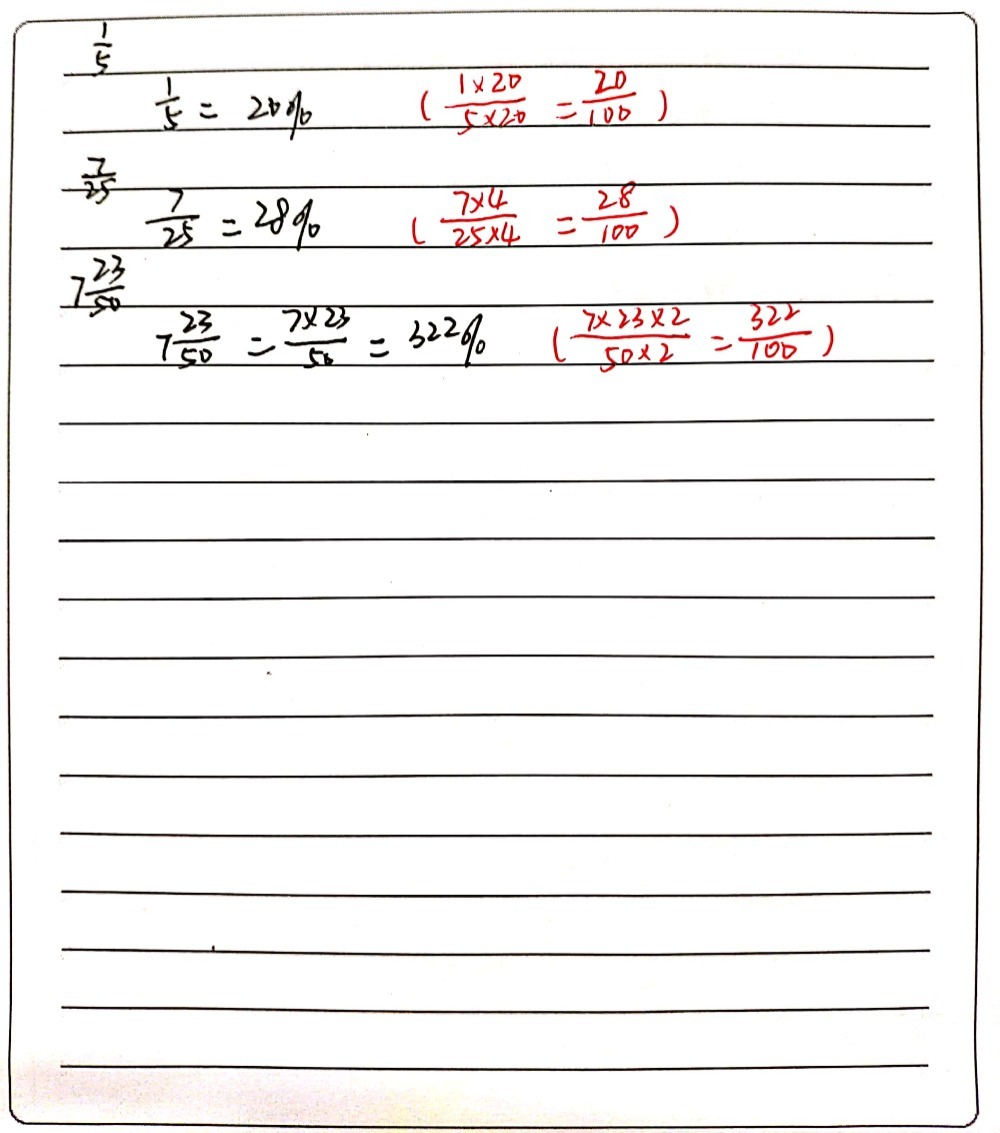 1/5
1/5 = 20% (1×20/5×20 = 20/100)
7/25
7/25 = 28% (7×4/25×4 = 28/100)
7 23/50
7 23/50 = 7×23/50 = 322% (7×23×2/50×2 = 322/100)